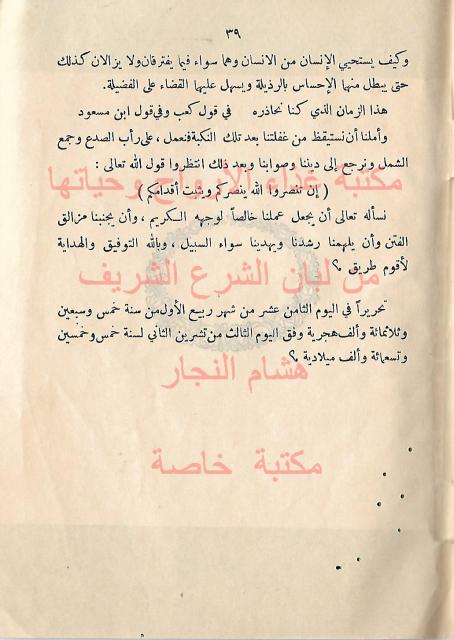 ٣٩
وكيف يستحيي الإنسان من الانسان وهما سواء فيما يفترقان ولا يزالان كذلك
حتى يبطل منها الإحساس بالرذيلة ويسهل عليها القضاء على الفضيلة.
هذا الزمان الذي كنا نحاذره في قول كعب وفي قول ابن مسعود
وأملنا أن نستيقظ من غفلتنا بعد تلك النكبة فنعمل، على رأب الصدع وجمع
الشمل ونرجع إلى ديننا وصوابنا وبعد ذلك انتظروا قول الله تعالى :
مكتبة غذاء الارواح وحياتها
( إن تنصروا الله ينصركم ويثبت أقدامكم )
نسأله تعالى أن يجعل عملنا خالصاً لوجهه الكريم ، وأن يجنبنا مزالق
الفتن وأن يلهمنا رشدنا ويهدينا سواء السبيل ، وبالله التوفيق والهداية
لأقوم طريق .؟
من لبان الشرع الشريف
تحريراً في اليوم الثامن عشر من شهر ربيع الأول من سنة خمس وسبعين
وثلاثمائة وألف هجرية وفق اليوم الثالث من تشرين الثاني لسنة خمس وخمسين
وتسعمائة وألف ميلادية .؟
هشام النجار
مكتبة خاصة